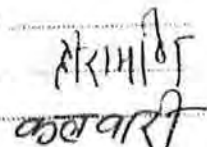 होरामणि
कलवारी